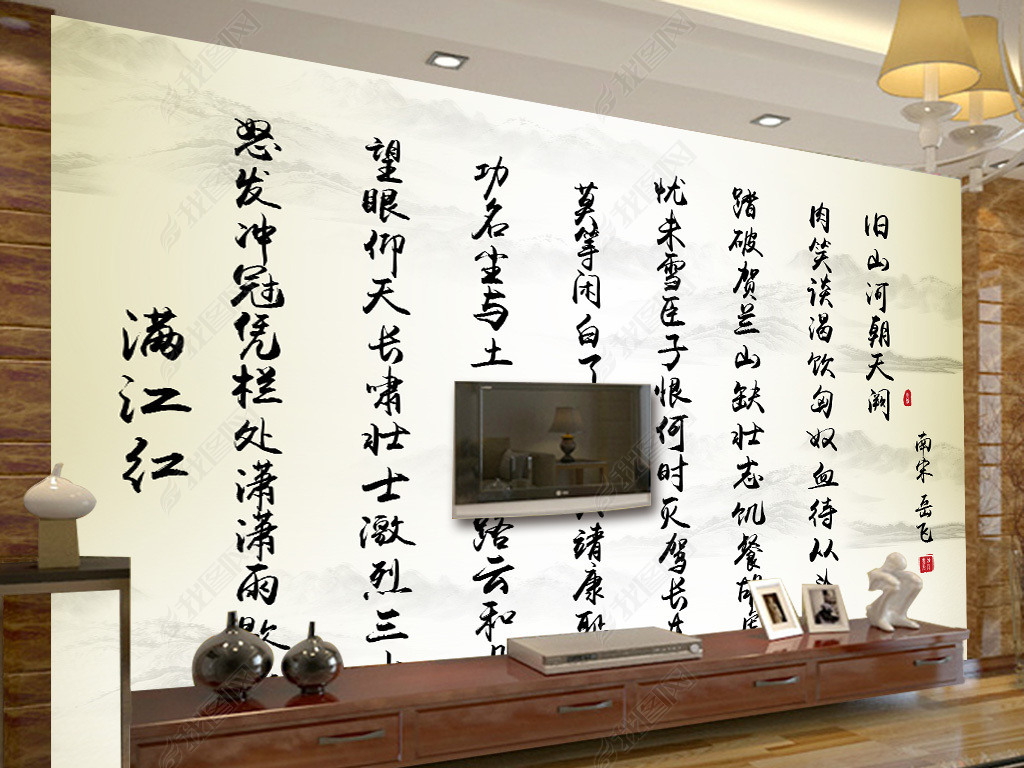 满江红
怒发冲冠凭栏处潇潇雨歇
望眼仰天长啸壮士激烈三
功名尘与土路云和
莫等闲白了靖康耻
忧未雪臣子恨何时灭驾长车
踏破贺兰山缺壮志饥餐胡虏
肉笑谈渴饮匈奴血待从
旧山河朝天阙
南宋 岳飞
LG
我图网